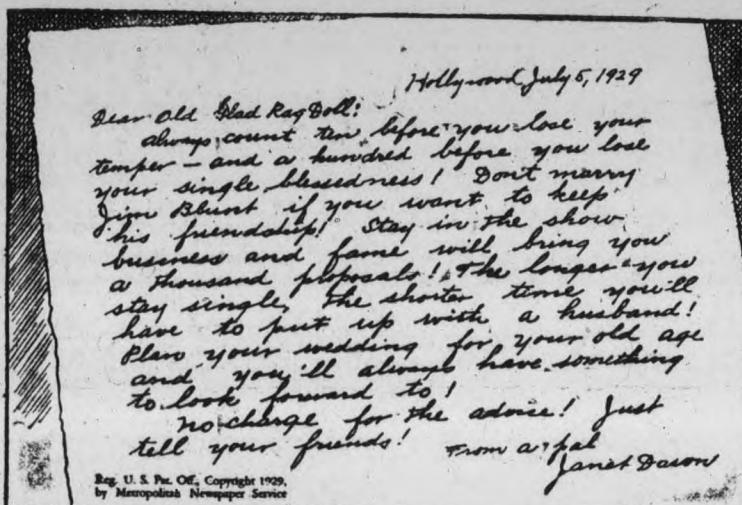 Hollywood July 5, 1929
Dear Old Glad Rag Doll!
Always count ten before you lose your
temper — and a hundred before you lose
your single blessedness! Don't marry
Jim Blunt if you want to keep
his friendship! Stay in the show
business and fame will bring you
a thousand proposals! The longer you
stay single, the shorter time you'll
have to put up with a husband!
Plan your wedding for your old age
and you'll always have something
to look forward to!
No charge for the advice! Just
tell your friends! From a pal
Janet Dawon
Reg. U. S. Pat. Off., Copyright 1929,
by Metropolitan Newspaper Service